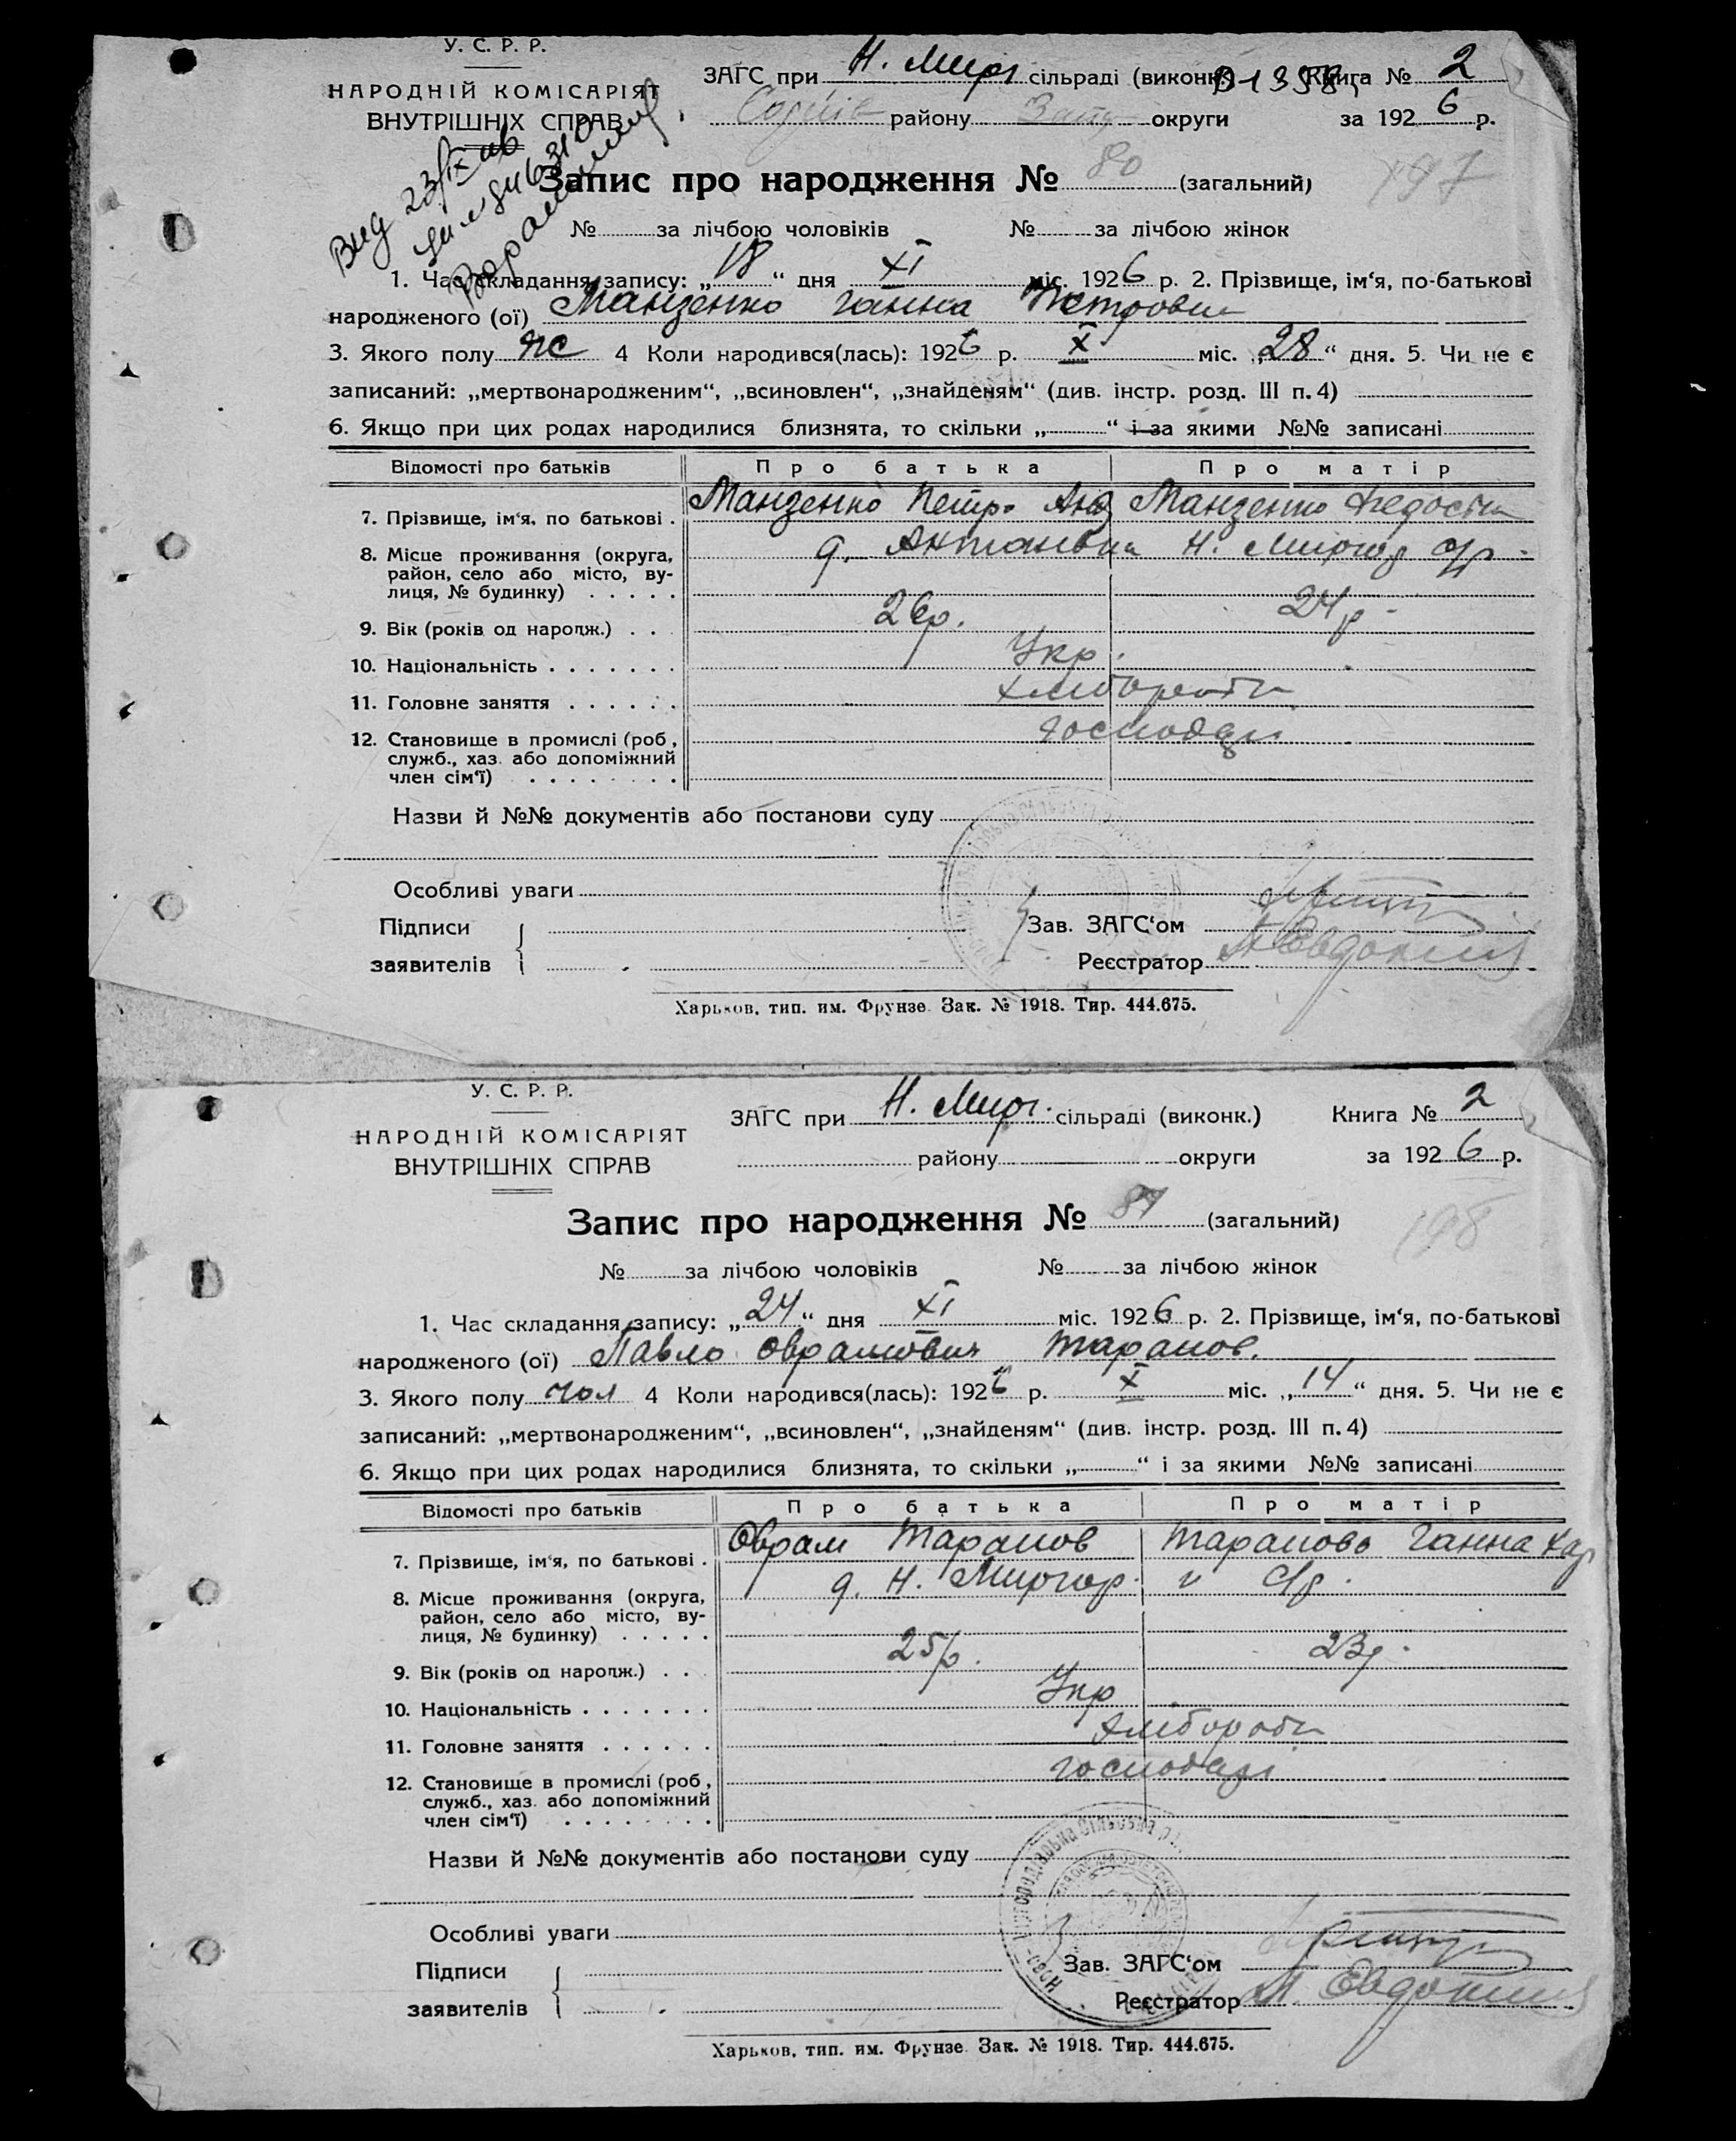 У. С. Р. Р.
НАРОДНІЙ КОМІСАРІЯТ
ВНУТРІШНІХ СПРАВ
ЗАГС при Н. Мирг сільраді (виконк.) Книга № 2
району округи за 1926 р.
Вид 23/IX
Запис про народження № 80 (загальний) 197
№ за лічбою чоловіків № за лічбою жінок
1. Час складання запису: „18“ дня XI міс. 1926 р. 2. Прізвище, ім‘я, по-батькові
народженого (ої) Манзенко Ганна Петровна
3. Якого полу жс 4 Коли народився(лась): 1926 р. X міс. „28“ дня. 5. Чи не є
записаний: „мертвонародженим“, „всиновлен“, „знайденям“ (див. інстр. розд. III п. 4)
6. Якщо при цих родах народилися близнята, то скільки „ “ і за якими №№ записані
Відомості про батьків Про батька Про матір
7. Прізвище, ім‘я, по батькові . Манзенко Петро Анд Манзенко Федосія
8. Місце проживання (округа, д. Н. Миргор
район, село або місто, ву-
лиця, № будинку) . . . . .
9. Вік (років од народж.) . . . 26р. 24р.
10. Національність . . . . . . . Укр.
11. Головне заняття . . . . . . Хлібороби
12. Становище в промислі (роб., господарі
служб., хаз. або допоміжний
член сім‘ї) . . . . . . . .
Назви й №№ документів або постанови суду
Особливі уваги
Підписи
заявителів
Зав. ЗАГС‘ом
Реєстратор
Харьков, тип. им. Фрунзе. Зак. № 1918. Тир. 444.675.
У. С. Р. Р.
НАРОДНІЙ КОМІСАРІЯТ
ВНУТРІШНІХ СПРАВ
ЗАГС при Н. Мирг. сільраді (виконк.) Книга № 2
району округи за 1926 р.
Запис про народження № 81 (загальний) 198
№ за лічбою чоловіків № за лічбою жінок
1. Час складання запису: „24“ дня XI міс. 1926 р. 2. Прізвище, ім‘я, по-батькові
народженого (ої) Павло Оврамович Таранов.
3. Якого полу чол 4 Коли народився(лась): 1926 р. X міс. „14“ дня. 5. Чи не є
записаний: „мертвонародженим“, „всиновлен“, „знайденям“ (див. інстр. розд. III п. 4)
6. Якщо при цих родах народилися близнята, то скільки „ “ і за якими №№ записані
Відомості про батьків Про батька Про матір
7. Прізвище, ім‘я, по батькові . Оврам Таранов Таранова Ганна Хар
8. Місце проживання (округа, д. Н. Миргор.
район, село або місто, ву-
лиця, № будинку) . . . . .
9. Вік (років од народж.) . . . 25р. 23р.
10. Національність . . . . . . . Укр
11. Головне заняття . . . . . . Хлібороби
12. Становище в промислі (роб., господарі
служб., хаз. або допоміжний
член сім‘ї) . . . . . . . .
Назви й №№ документів або постанови суду
Особливі уваги
Підписи
заявителів
Зав. ЗАГС‘ом
Реєстратор
Харьков, тип. им. Фрунзе. Зак. № 1918. Тир. 444.675.